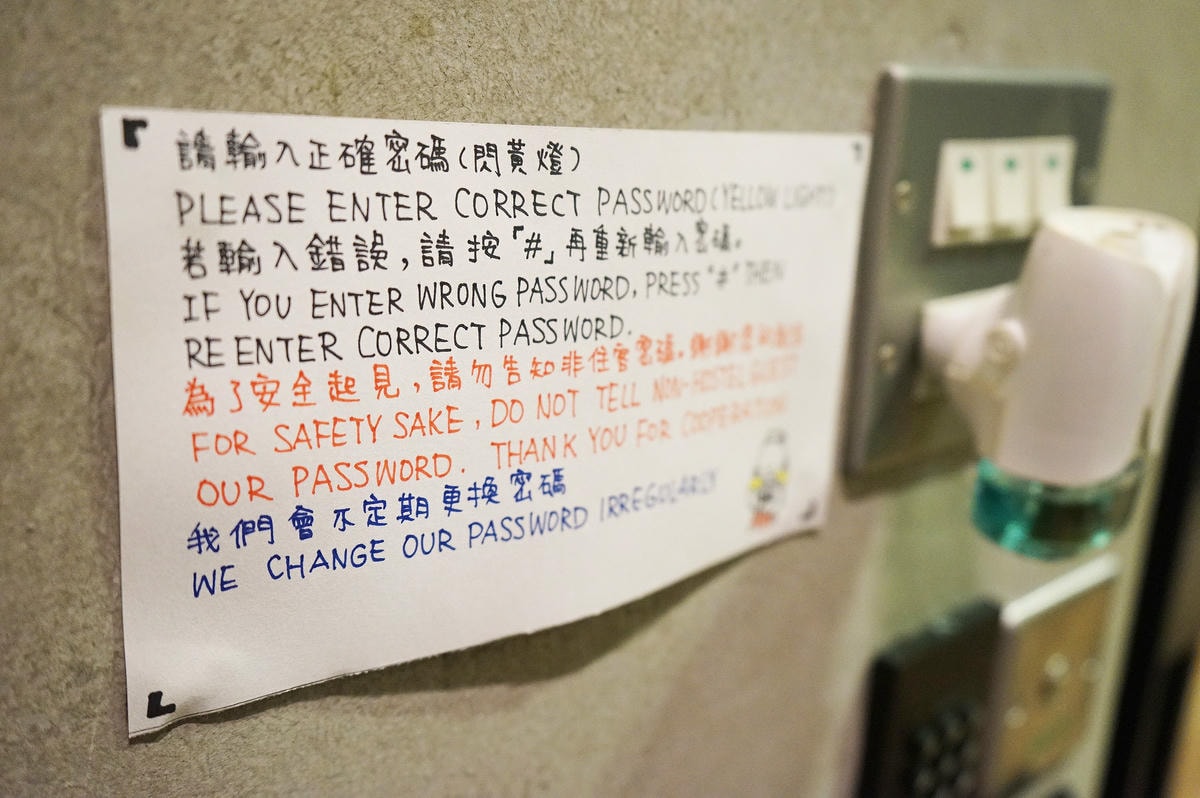 請輸入正確密碼(閃黃燈)
PLEASE ENTER CORRECT PASSWORD(YELLOW LIGHT)
若輸入錯誤,請按「#」再重新輸入密碼。
IF YOU ENTER WRONG PASSWORD, PRESS "#" THEN
RE ENTER CORRECT PASSWORD.
為了安全起見,請勿告知非住客密碼。謝謝
FOR SAFETY SAKE, DO NOT TELL NON-HOSTEL GUEST
OUR PASSWORD. THANK YOU FOR COOPERATION
我們會不定期更換密碼
WE CHANGE OUR PASSWORD IRREGULARLY